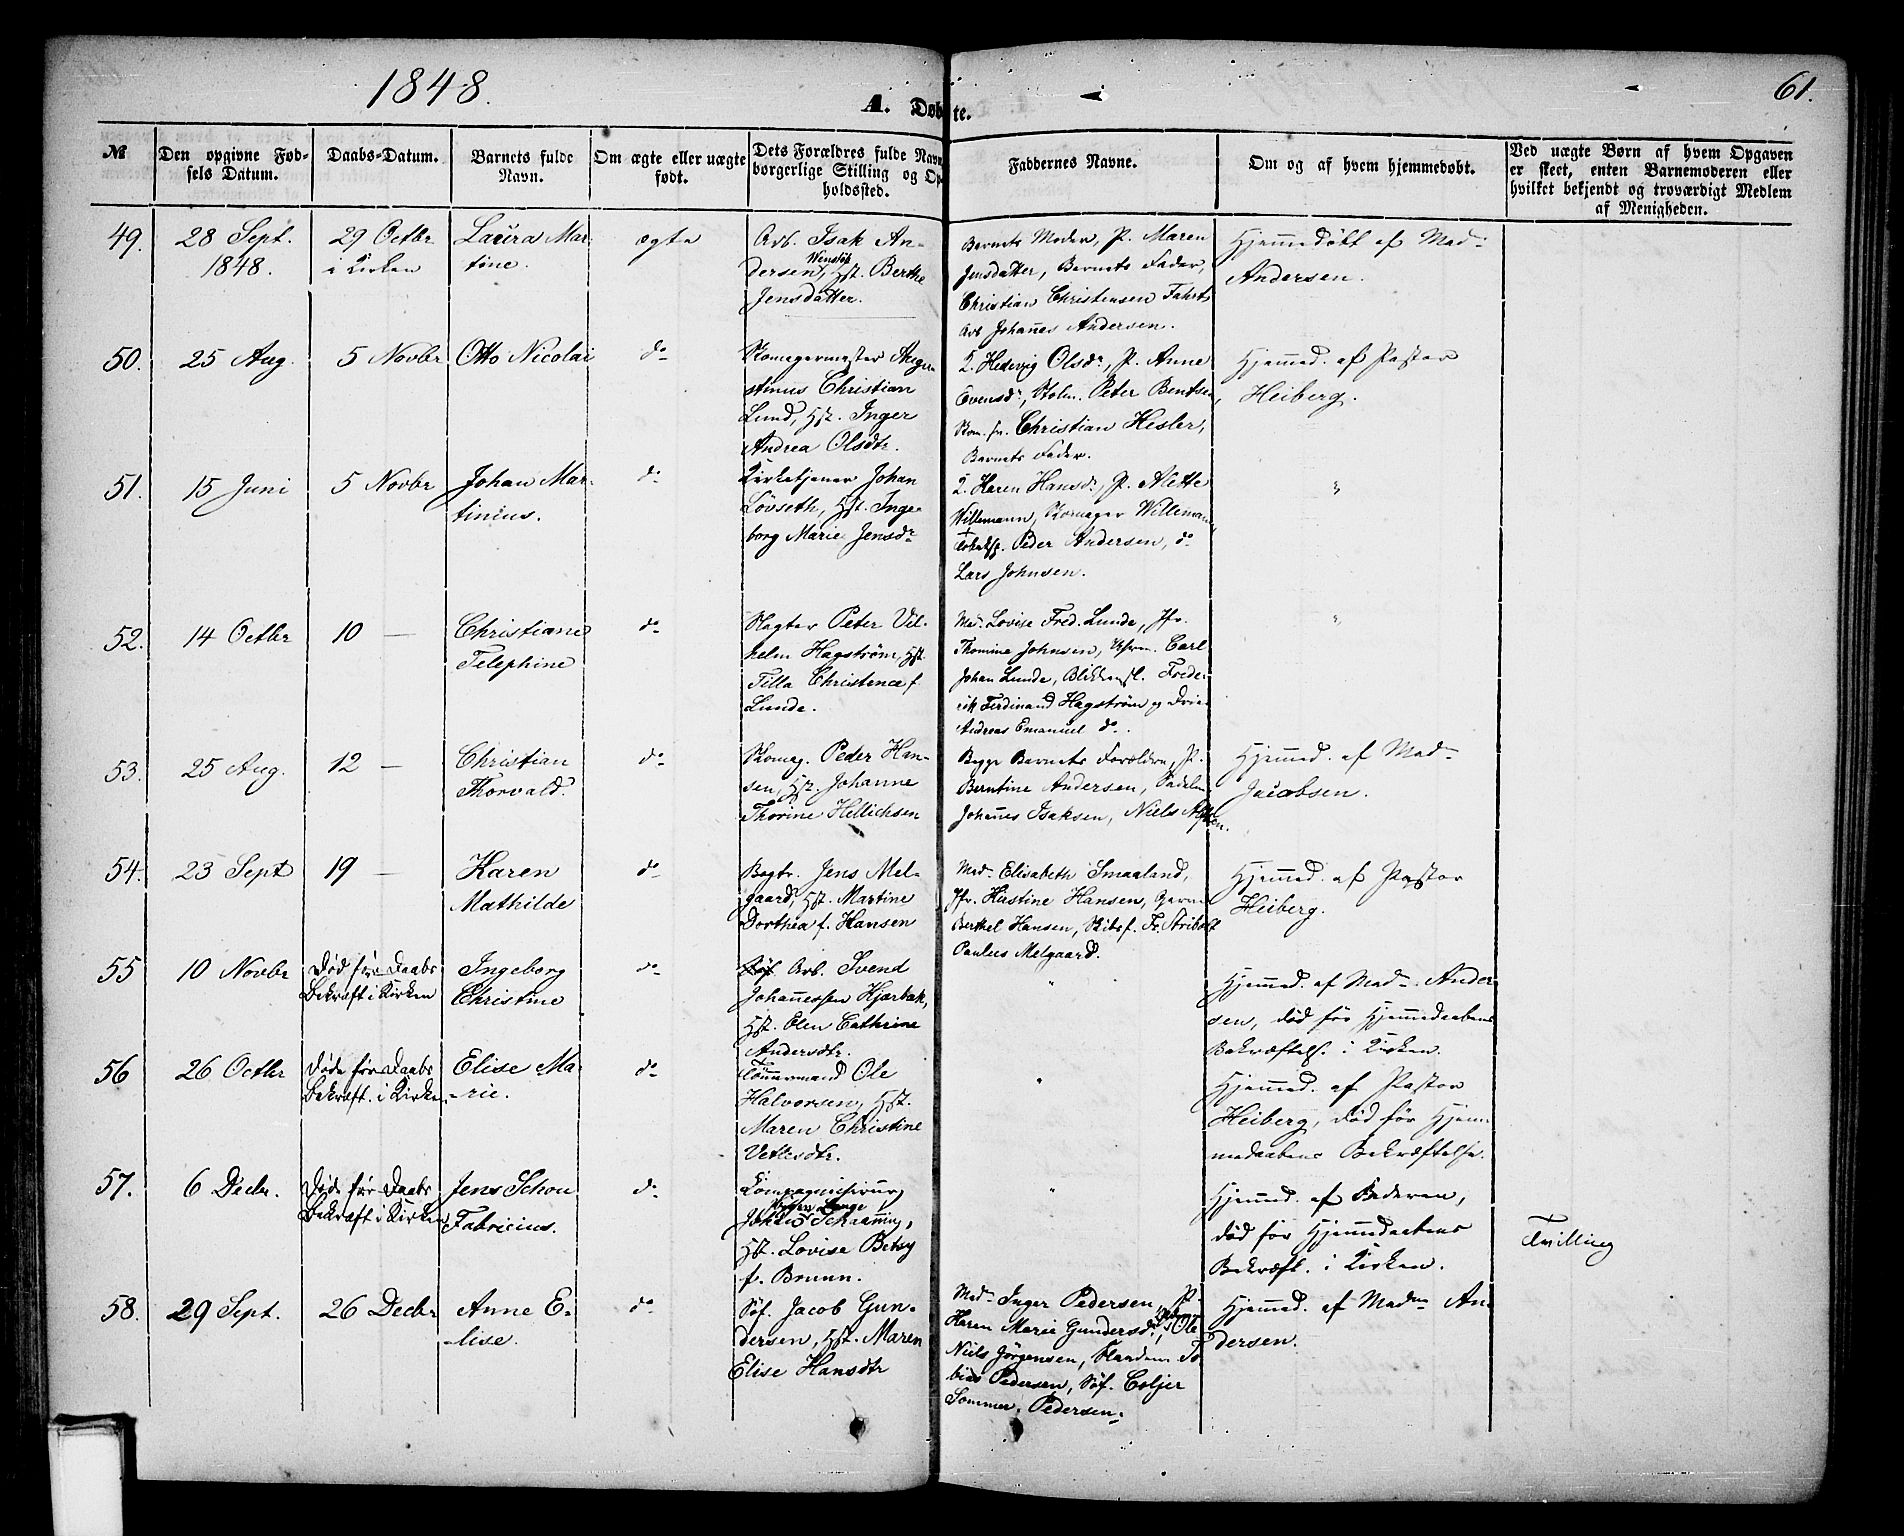 1848.
A. Døbte.
61.
№
Den opgivne Fød-
sels Datum.
Daabs-Datum.
Barnets fulde
Navn.
Om ægte eller uægte
født.
Dets Forældres fulde Navn
borgerlige Stilling og Op-
holdssted.
Faddernes Navne.
Om og af hvem hjemmedøbt.
Ved uægte Børn af hvem Opgaven
er skeet, enten Barnemoderen eller
hvilket bekjendt og troværdigt Medlem
af Menigheden.
49.
28 Sept.
1848.
29 Octbr
i Kirken
Laura Mar-
tine.
ægte
Arb. Isak An-
dersen, Hst. Berthe
Jensdatter.
Barnets Moder, P. Maren
Jensdatter, Barnets Fader,
Christian Christensen
Arb Johannes Andersen.
Hjemmedøbt af Mad-
Andersen.
50.
25 Aug.
5 Novbr
Otto Nicolai
do
Skomagermester Augu-
stinus Christian
Lund, Hst. Inger
Andrea Olsdtr.
Q. Hedevig Olsdr, P. Anne
Evensdr, Peter Bentsen,
Christian Hesler,
Barnets Fader.
Hjemmed. af Pastor
Heiberg.
51.
15 Juni
5 Novbr
Johan Mar-
tinius.
do
Kirketjener Johan
Løvseth, Hst. Inge-
borg Marie Jensdr
Q. Karen Hansdr, P. Alette
Willemann, Skomager Willeman
Peder Andersen, do
Lars Johnsen.
"
52.
14 Octbr
10 —
Christiane
Telephine
do
Slagter Peter Vil-
helm Hagstrøm, Hst.
Tilla Christence f.
Lunde.
Md. Lovise Fred. Lunde, Jfr.
Thomine Johnsen, Carl
Johan Lunde, Blikkensl. Frede-
rik Ferdinand Hagstrøm og
Andreas Emanuel do.
"
53.
25 Aug.
12 —
Christian
Thorvald.
do
Skomag. Peder Han-
sen, Hst. Johanne
Thorine Hellichsen
Begge Barnets Forældre, P.
Berntine Andersen, Sadelm
Johannes Isaksen, Niels
Hjemmed. af Mad-
Jacobsen.
54.
23 Sept
19 —
Karen
Mathilde
do
Bogtr. Jens Mel-
gaard, Hst. Martine
Dorthea f. Hansen
Mad- Elisabeth Smaaland,
Jfr. Kistine Hansen, Garm
Berthel Hansen, Skibsf. Fr. Stribolt
Paulus Melgaard.
Hjemmed. af Pastor
Heiberg.
55
10 Novbr
Død før Daabs
Bekræft i Kirken
Ingeborg
Christine
do
Arb. Svend
Johannessen Hjerbak,
Hst. Elen Cathrine
Andersdtr.
"
Hjemmed. af Mad- Ander-
sen, død før Hjemmedaabens
Bekræftels. i Kirken.
56
26 Octbr
Døde før Daabs
Bekræft. i Kirken
Elise Ma-
-rie.
do
Tømmermand Ole
Halvorsen, Hst.
Maren Christine
Vetlesdtr.
"
Hjemmed. af Pastor
Heiberg, død før Hjem-
medaabens Bekræftelse.
57.
6 Decbr.
Døde før Daabs
Bekræft i Kirken
Jens Schou
Fabricius.
do
Compagniesirurg
Lange
Schaaning,
Hst. Lovise Betsy
f. Bruun.
"
Hjemmed. af Faderen,
død før Hjemmedaabens
Bekræft. i Kirken.
Tvilling
58.
29 Sept.
26 Decbr
Anne E-
-lise.
do
Søf. Jacob Gun-
dersen, Hst. Maren
Elise Hansdtr
Mad- Inger Pedersen, P.
Karen Marie Gundersdr, Ole
Niels Jørgensen, To-
bias Pedersen, Søf. Coljer
Sommer Pedersen.
Hjemmed. af Madm An-
dersen.